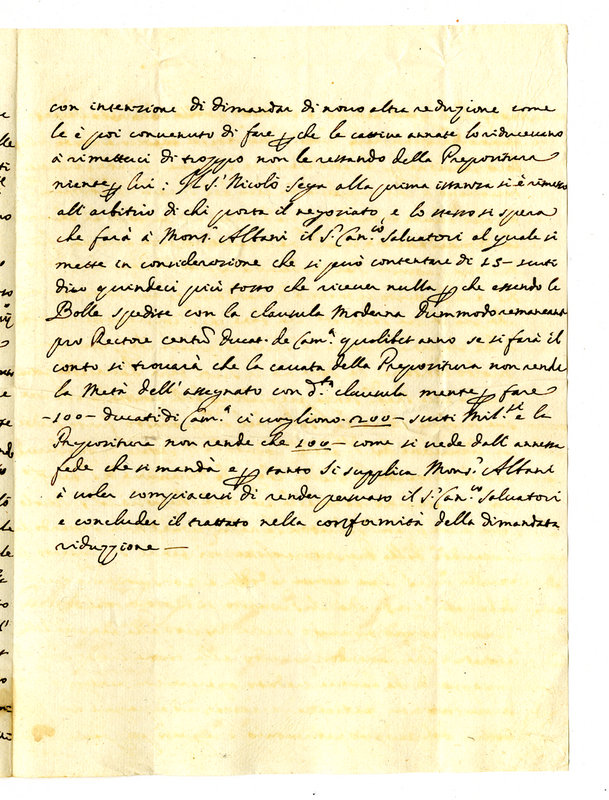 con intenzione di dimandar di novo altra reduzione come
le è poi convenuto di fare p che le cattive annate lo riducevano
à rimetterci di troppo non le restando della Prepositura
niente p lui: Il S.r Nicolò Sega alla prima istanza si è rimesso
all'arbitrio di chi porta il negoziato, e lo stesso si spera
che farà à Mons.r Altani il S.r Can.co Salvatori al quale si
mette in considerazione che si può contentare di 15- scuti
dico quindeci più tosto che ricever nulla p che essendo le
Bolle spedite con la clausula Moderna Dummodo remaneant
pro Rectore centũ ducat. de Cam.a quolibet anno se si farà il
conto si trouarà che la cauata della Prepositura non rende
la Metà dell'assegnato con d.ta clausula mentre p fare
-100- ducati di Cam.a ci vogliono 200- scuti e la
Prepositura non rende che 100- come si vede dall'annessa
fede che si manda e p tanto si supplica Mons.r Altani
à voler compiacersi di render persuaso il S.r Can.co Salvatori
e concluder il trattato nella conformità della dimandata
riduzzione —